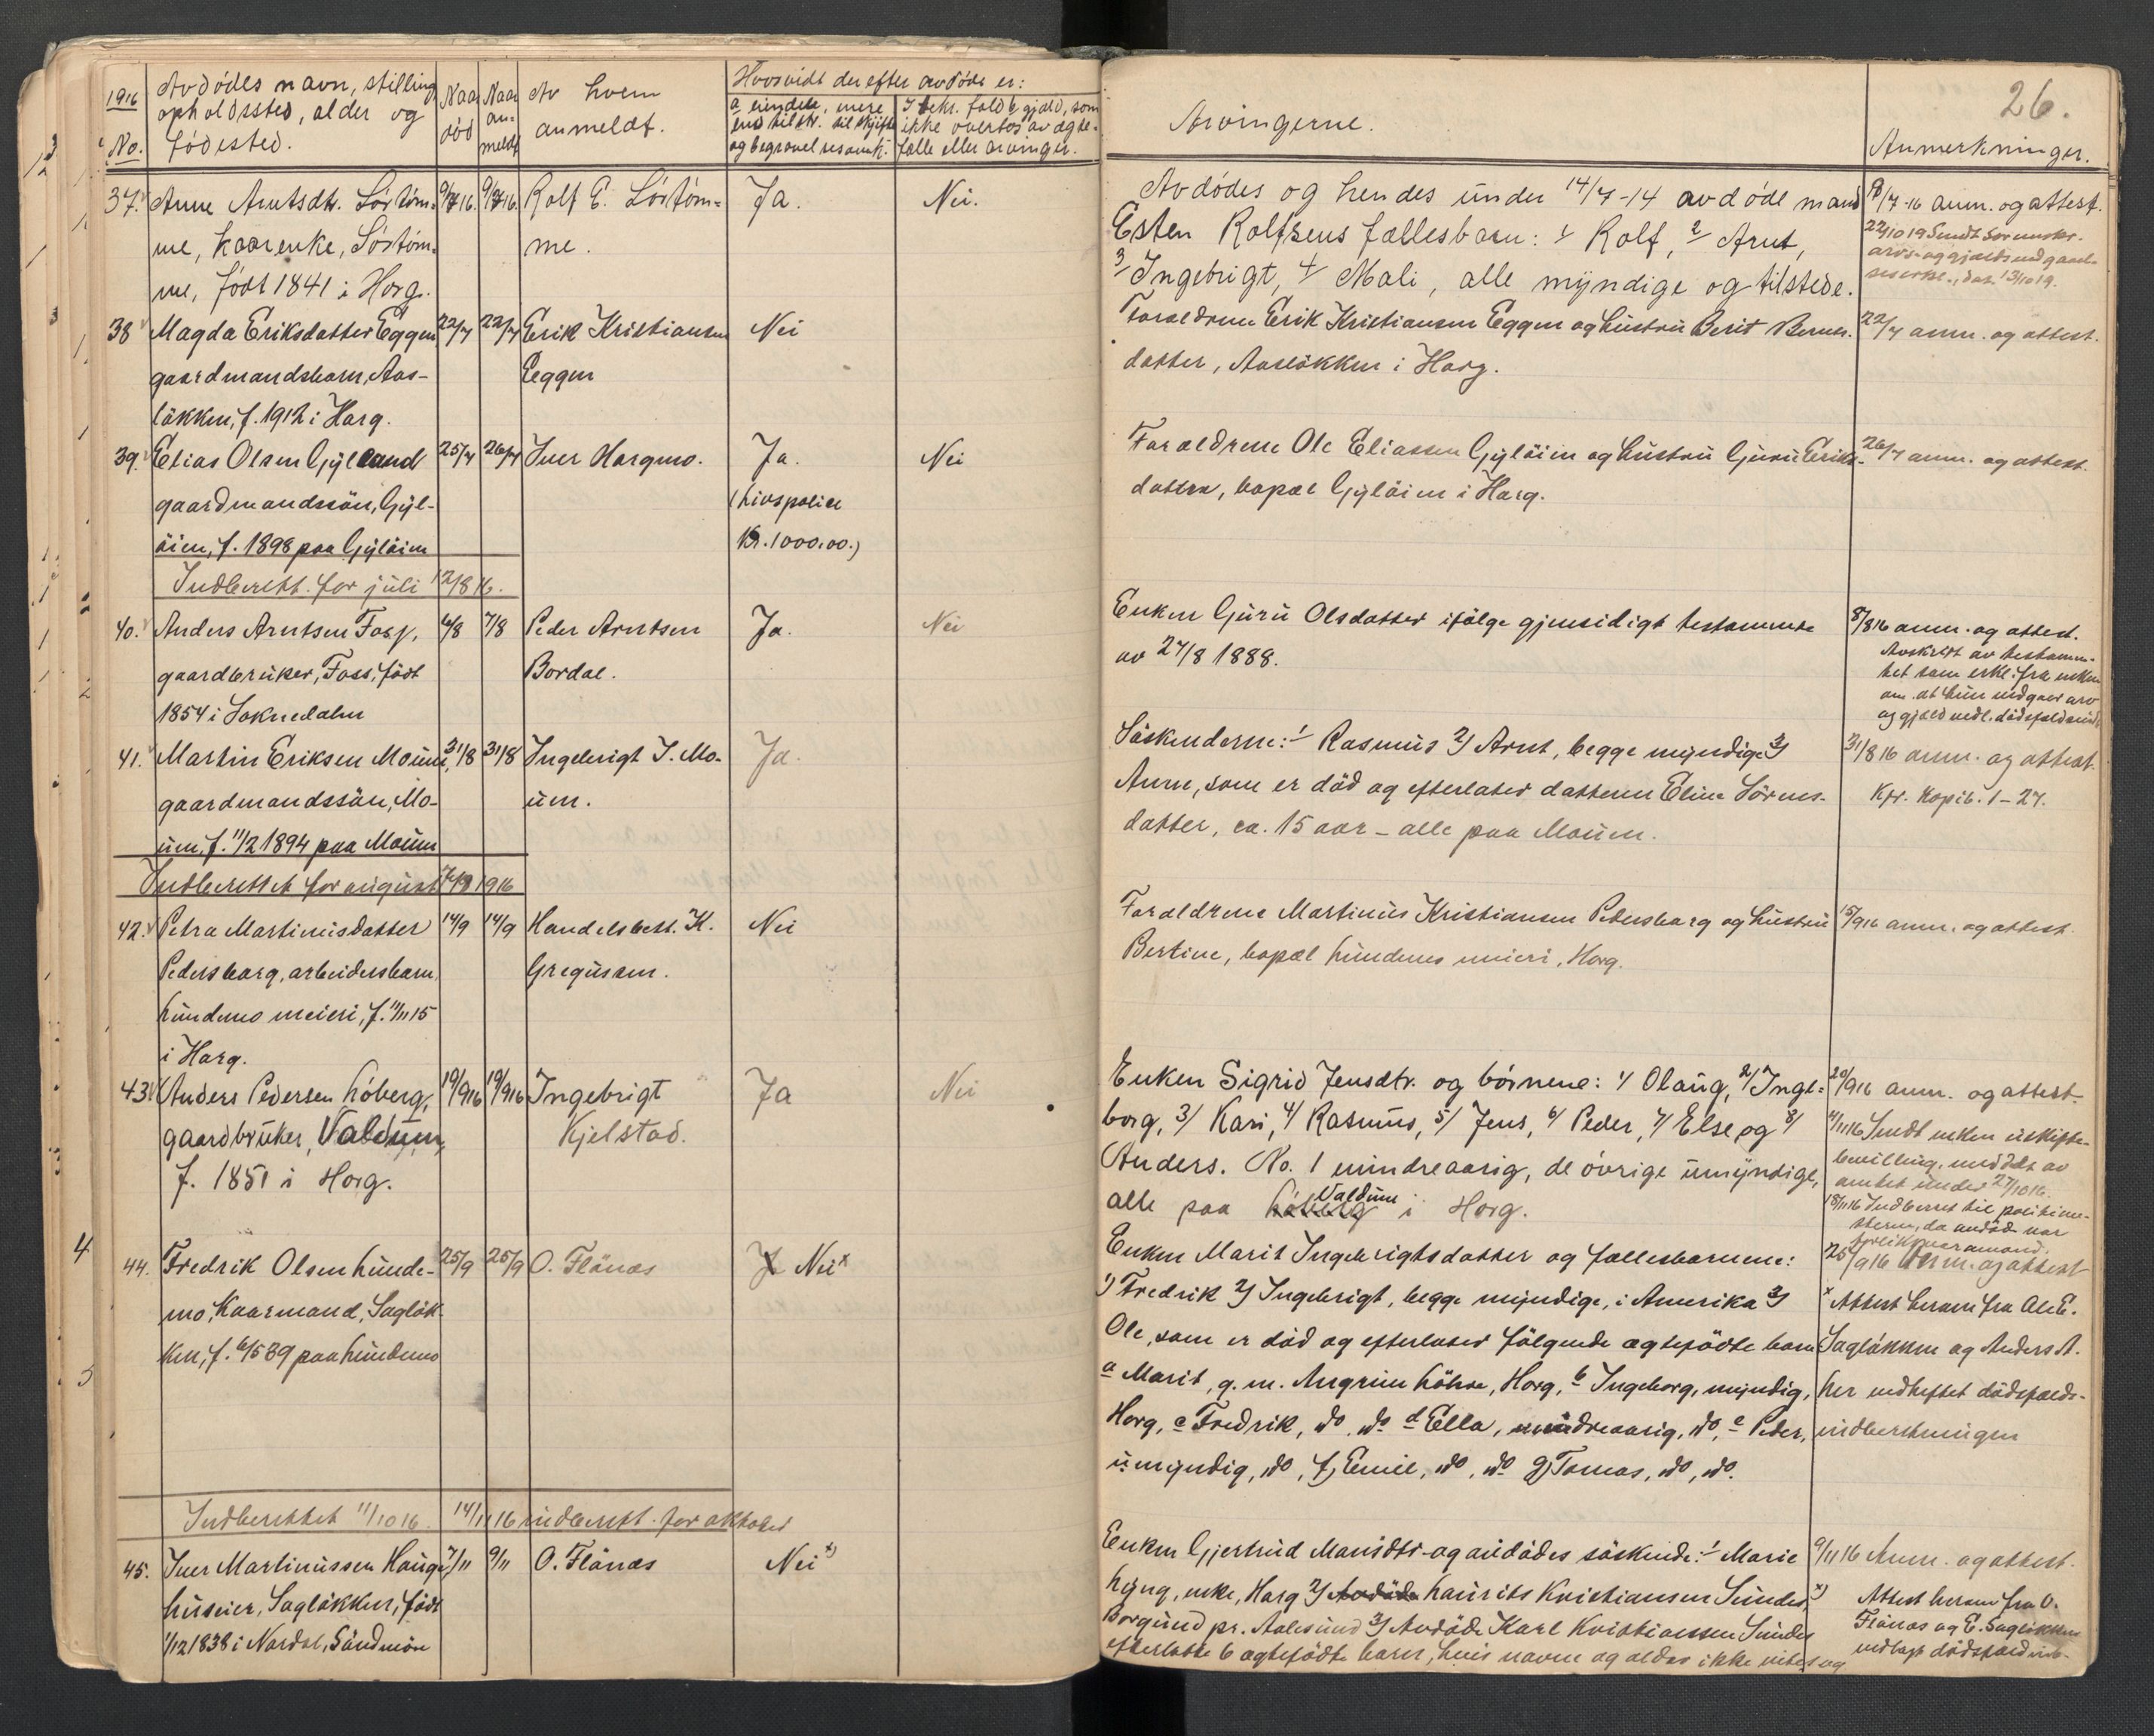 1916
No.
Avdödes navn, stilling
opholdssted, alder og
fødested.
Naar
död
Naar
an-
meldt
Av hvem
anmeldt.
Hvorvidt der efter avdöde er:
a eiendele, mere
end til str. til skifte
og begravelsesomk.
I bekr. fald b gjæld, som
ikke overtos av ægte-
fælle eller arvinger.
Arvingerne.
26.
Anmerkninger.
37.
Anne Arntsdtr. Sörtöm-
me, kaarenke, Sörtöm-
me, födt 1841 i Horg.
9/7 16.
9/7 16.
Rolf E. Sörtöm-
me.
Ja.
Nei.
Avdödes og hendes under 14/7-14 avdöde mand
Esten Rolfsens fællesbarn: 1/ Rolf, 2/ Arnt,
3/ Ingebrigt, 4/ Mali, alle myndige og tilstede.
9/7-16 anm. og attest.
22/10 19 Sendt Sorenskr.
arvs- og gjælds
13/10 19.
38
Magda Eriksdatter Eggen
gaardmandsbarn, Aas-
løkken, f. 1912 i Horg.
22/7
22/7
Erik Kristiansen
Eggen
Nei
Forældrene Erik Kristiansen Eggen og hustru Berit Bernts-
datter, Aasløkken i Horg.
22/7 anm. og attest.
39.
Elias Olsen Gylland
gaardmandssön, Gyl-
öien, f. 1898 paa Gylöien
25/7
26/7
Iver Horgmo.
Ja.
(Livspolice
Kr. 1000.00.)
Nei
Forældrene Ole Eliassen Gylöien og hustru Guru Eriks-
datter, bopæl Gylöien i Horg.
26/7 anm. og attest.
Indberett. for juli 12/8 16.
40.
Anders Arntsen Foss,
gaardbruker, Foss, födt
1854 i Soknedalen
4/8
7/8
Peder Arntsen
Bordal.
Ja.
Nei
Enken Guru Olsdatter ifölge gjensidigt testamente
av 27/8 1888.
8/8 16 anm. og attest.
Avskrift av testamen-
tet som erkl. fra enken
om at hun vedgaar arv
og gjæld vedl. dödsfaldsind.
41.
Martin Eriksen Moum,
gaardmandssön, Mo-
um, f. 11/2 1894 paa Moum
31/8
31/8
Ingebrigt J. Mo-
um.
Ja.
Söskenderne: 1/ Rasmus 2/ Arnt, begge myndige 3/
Anne, som er död og efterlater datteren Eline Sörens-
datter, ca. 15 aar – alle paa Moum.
31/8 16 anm. og attest.
Kfr. Kopib. 1 – 27.
Indberettet for august 1916
42.
Petra Martinusdatter
Pedersborg, arbeidersbarn,
Lundemo meieri, f. 11/11 15
i Horg.
14/9
14/9
Handelsbest. K.
Gregusson.
Nei
Forældrene Martinus Kristiansen Pedersborg og hustru
Bertine, bopæl Lundemo meieri, Horg.
15/9 16 anm. og attest.
43.
Anders Pedersen Löberg,
gaardbruker, Valdum,
f. 1851 i Horg.
19/9 16
19/9 16
Ingebrigt
Kjelstad.
Ja
Nei
Enken Sigrid Jensdtr. og börnene: 1/ Olaug, 2/ Inge-
borg, 3/ Kari, 4/ Rasmus, 5/ Jens, 6/ Peder, 7/ Else og 8/
Anders. No. 1 mindreaarig, de övrige umyndige,
alle paa Löberg Valdum i Horg.
20/9 16 anm. og attest.
4/11 16 Sendt enken uskifte-
bevilling, meddelt av
amtet under 27/10 16.
18/11 16 Indberet til politime-
steren, da avdöde var
forlikesmand.
44.
Fredrik Olsen Lunde-
mo, Kaarmand, Sagløk-
ken, f. 6/5 39 paa Lundemo
25/9
25/9
O. Flånæs
J Nei x
Enken Marit Ingebrigtsdatter og fællesbarnene:
1) Fredrik 2/ Ingebrigt, begge myndige, i Amerika 3/
Ole, som er död og efterlater fölgende ægtefödte barn
a Marit, g. m. Angrim Löhre, Horg, b Ingeborg, myndig,
Horg, c Fredrik, do, do d Ella, mindreaarig, do, e Peder,
umyndig, do, f) Emil, do, do g) Tomas, do, do.
25/9 16 Anm. og attest
x Attest herom fra Ole E.
Sagløkken og Anders A.
her vedheftet dödsfalds-
indberetningen
Indberettet 11/10 16.
14/11 16 indberett. for oktober
45.
Iver Martinussen Hauge
huseier, Sagløkken, födt
1/12 1838 i Nordal, Söndmöre
7/11
9/11
O. Flånæs
Nei x)
Enken Gjertrud Monsdtr. og avdödes söskende: 1/ Marie
Lyng, enke, Horg 2/ Avdöde Laurits Kristiansen Sundes,
Borgund pr. Aalesund 3/ Avdöde Karl Kristiansen Sundes
efterlatte 6 ægtefödte barn, hvis navne og alder ikke vites og
9/11 16 Anm. og attest.
x) Attest herom fra O.
Flånæs og E. Sagløkken
vedlagt dödsfaldsind-